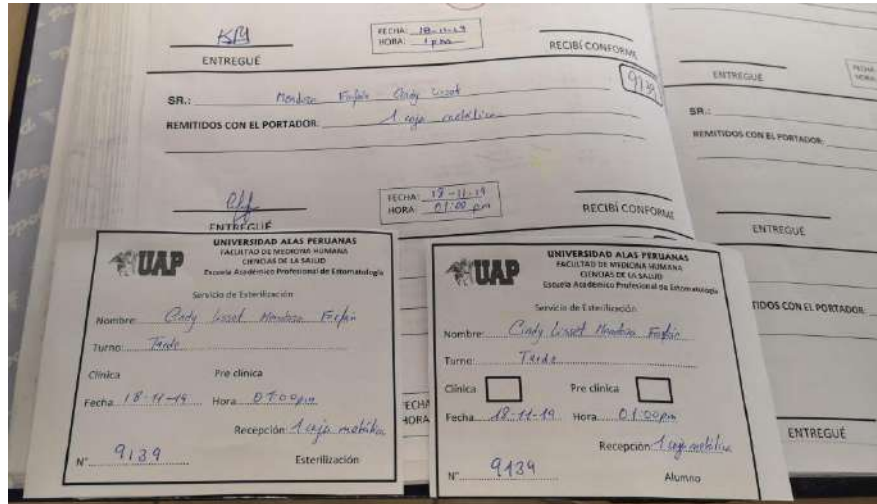 FECHA: 18-11-19
HORA: 1 pm
ENTREGUÉ
RECIBÍ CONFORME
9139
SR.: Mendoza Farfán Cindy Lisset
REMITIDOS CON EL PORTADOR: 1 caja metálica
FECHA: 18-11-19
HORA: 01:00 pm
ENTREGUÉ
RECIBÍ CONFORME
ENTREGUÉ
FECHA
HORA
SR.:
REMITIDOS CON EL PORTADOR:
ENTREGUÉ
TIDOS CON EL PORTADOR:
ENTREGUÉ
UAP
UNIVERSIDAD ALAS PERUANAS
FACULTAD DE MEDICINA HUMANA
CIENCIAS DE LA SALUD
Escuela Académico Profesional de Estomatología
Servicio de Esterilización
Nombre: Cindy Lisset Mendoza Farfán
Turno: Tarde
Clínica Pre clínica
Fecha 18-11-19 Hora 01:00pm
Recepción 1 caja metálica
N° 9139 Esterilización
ECHA
HORA
UAP
UNIVERSIDAD ALAS PERUANAS
FACULTAD DE MEDICINA HUMANA
CIENCIAS DE LA SALUD
Escuela Académico Profesional de Estomatología
Servicio de Esterilización
Nombre: Cindy Lisset Mendoza Farfán
Turno: Tarde
Clínica Pre clínica
Fecha 18-11-19 Hora 01:00pm
Recepción 1 caja metálica
N° 9139 Alumno